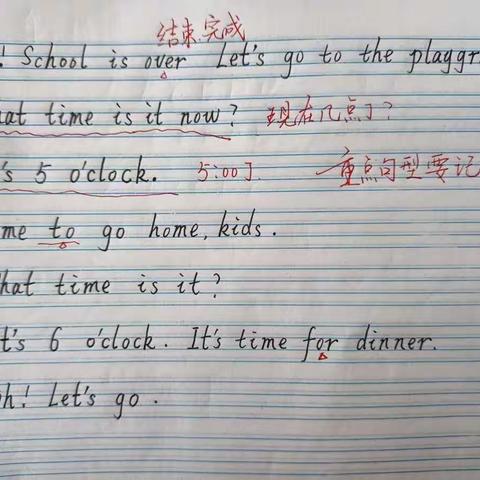 结束,完成
! School is over Let's go to the plaggr
at time is it now? 现在几点了?
's 5 o'clock. 5:00了 重点句型要记
me to go home, kids.
hat time is it?
t's 6 o'clock. It's time for dinner.
oh! Let's go.